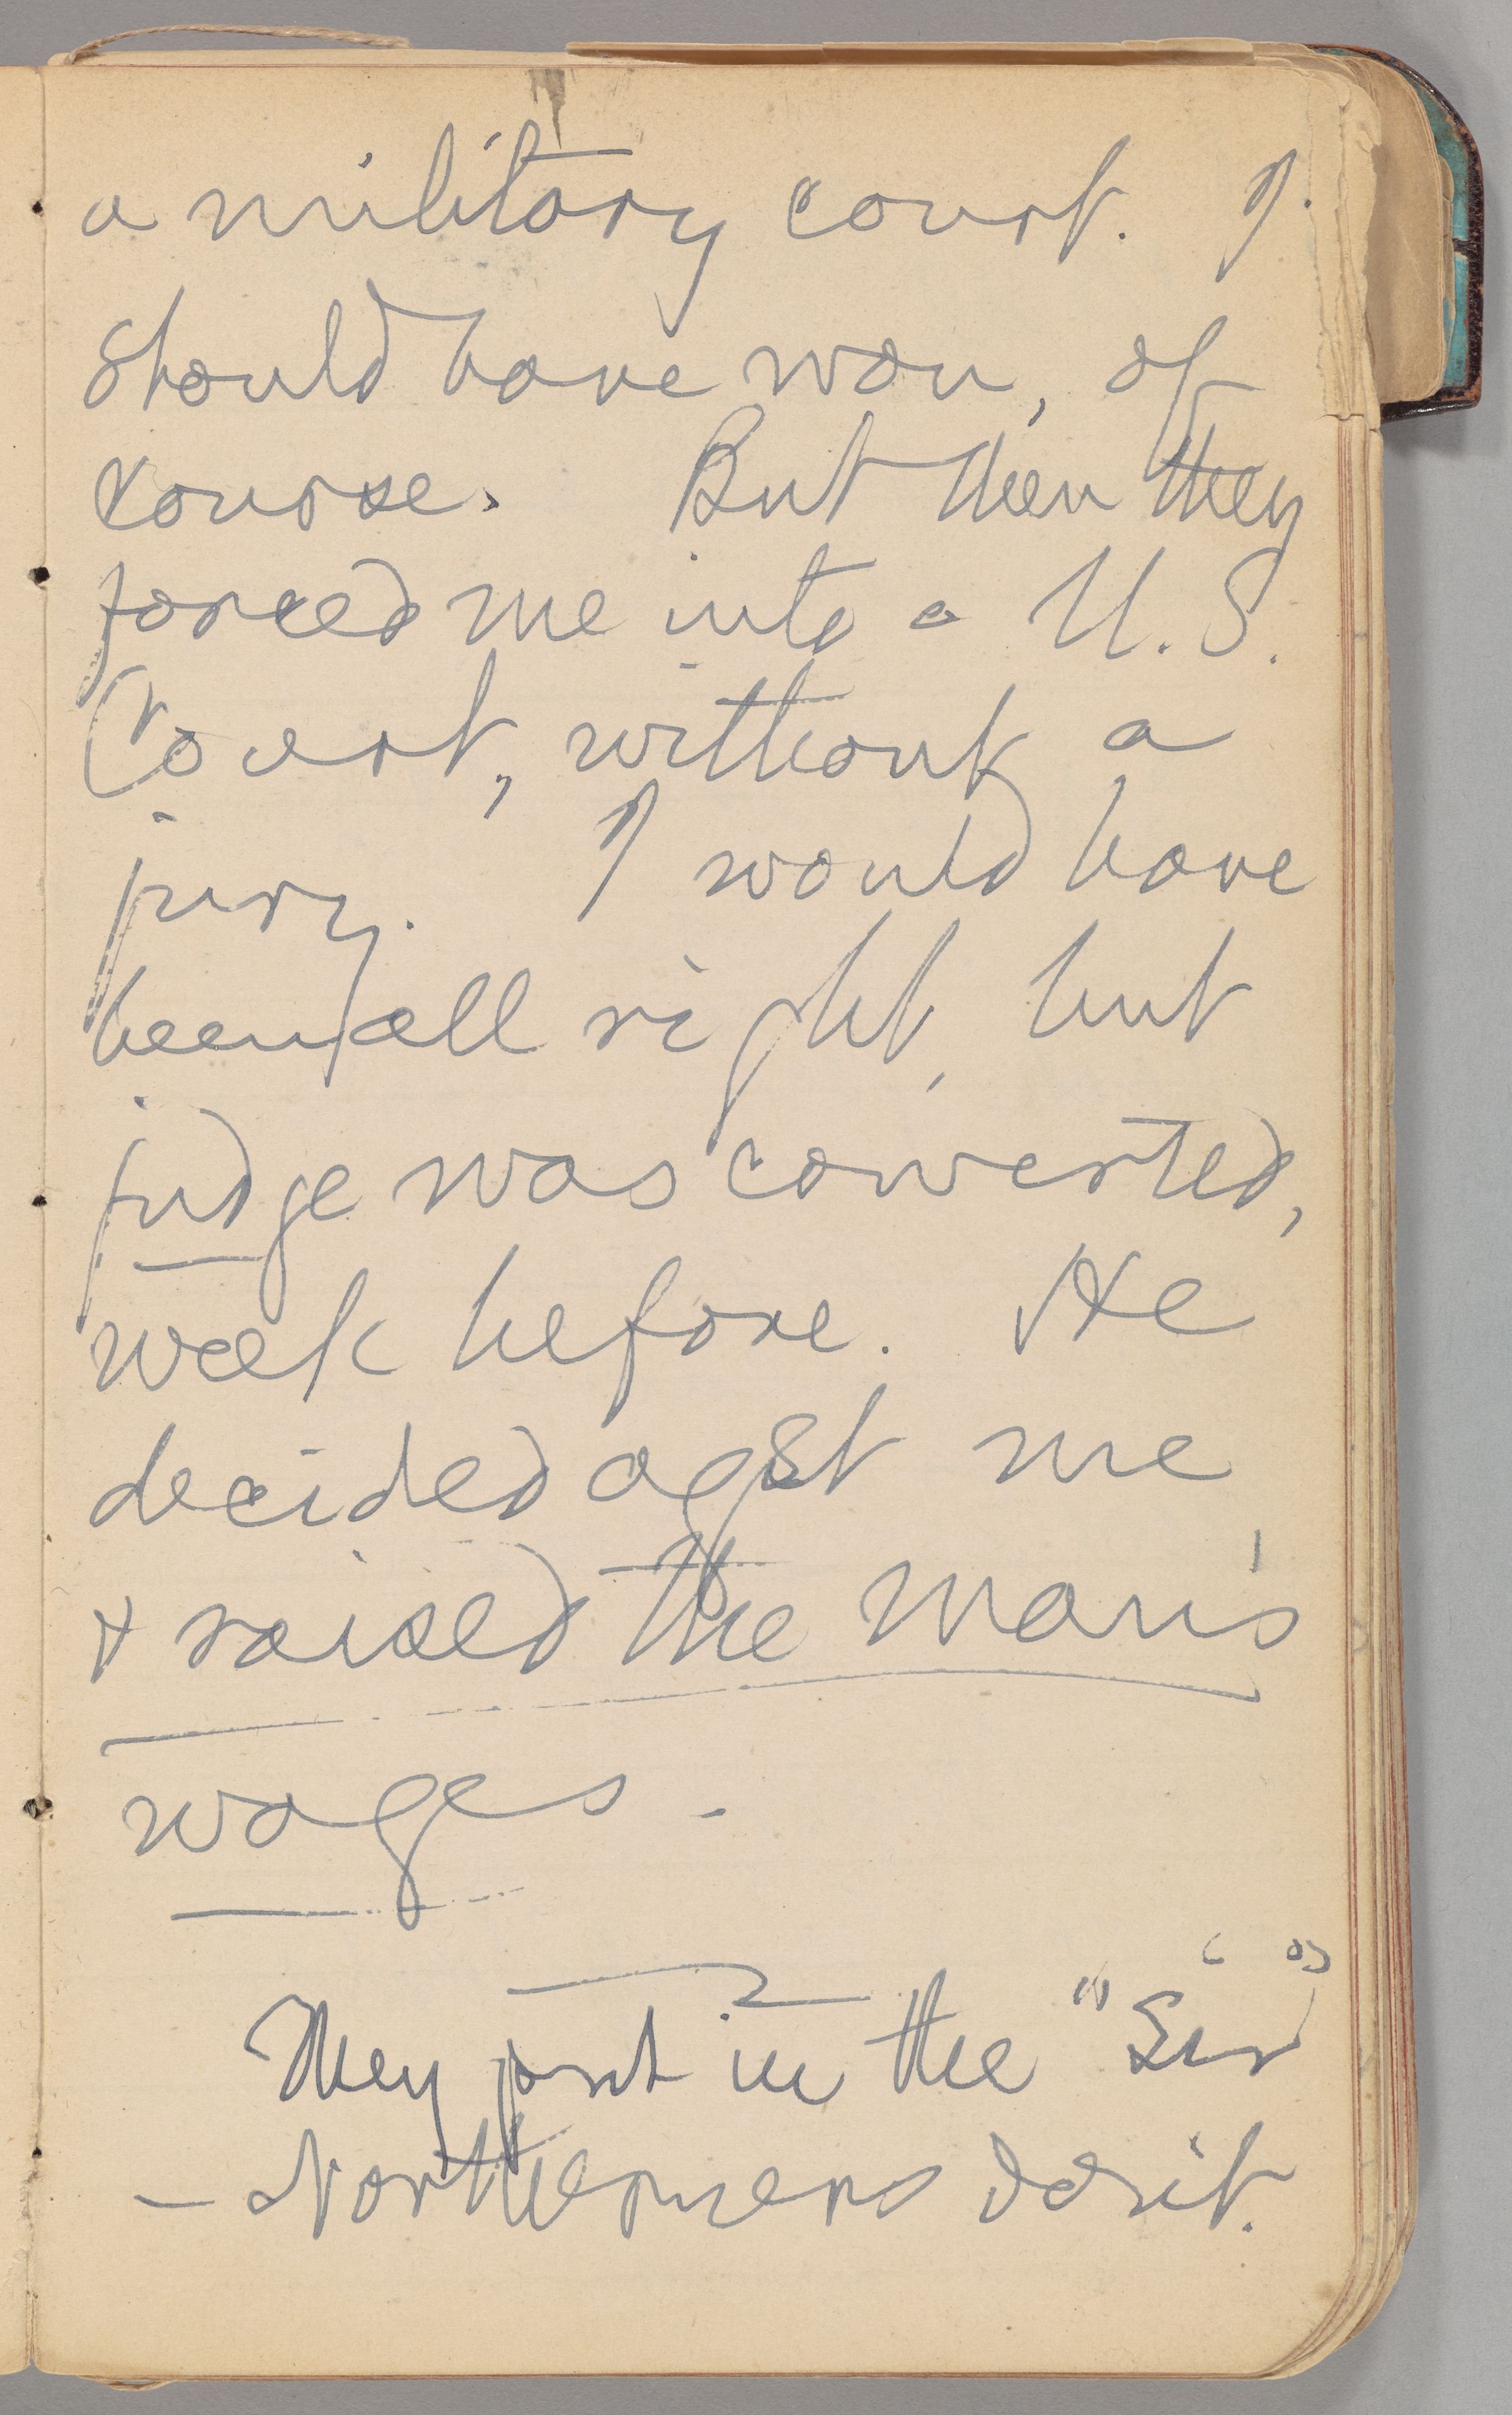 a military court. I
should have won, of
course. But then they
forced me into a U.S.
Court, without a
jury. I would have
been all right, but
judge was converted,
week before. He
decided agst me
& raised the man's
wages.
They put in the "Sir"
— Northerners do it.